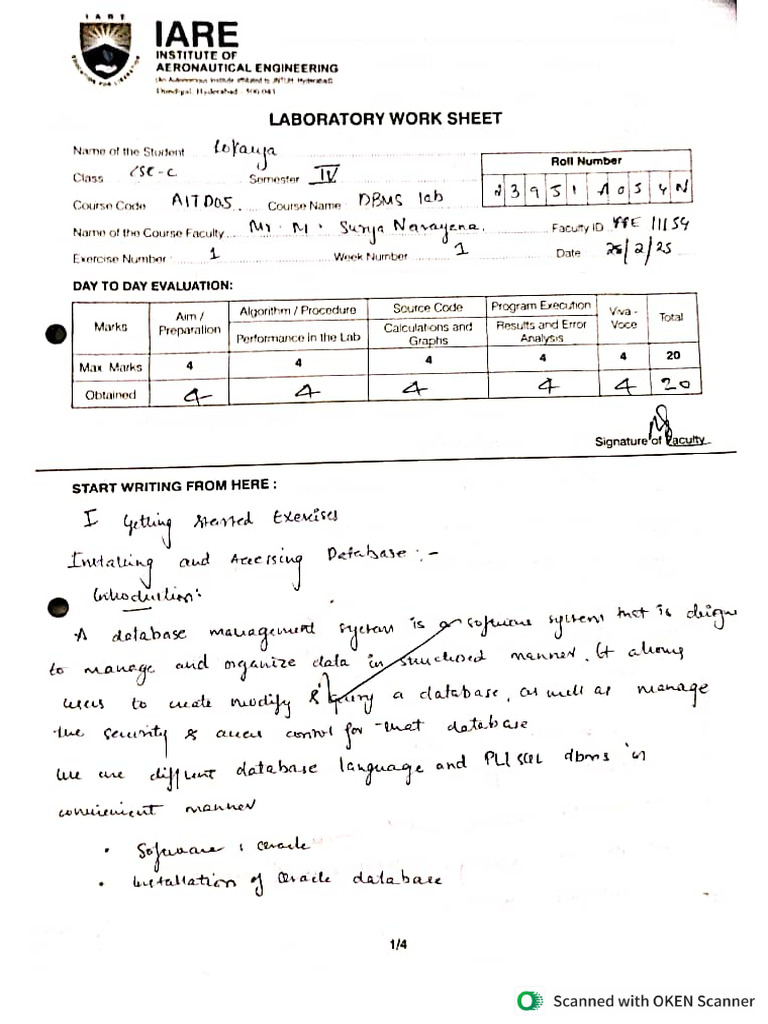 IARE
INSTITUTE OF
AERONAUTICAL ENGINEERING
(An Autonomous Institute affiliated to JNTUH, Hyderabad)
Dundigal, Hyderabad - 500 043
LABORATORY WORK SHEET
Name of the Student Lokanya
Class CSE-C Semester IV
Roll Number
2 3 9 5 1 A 0 5 4 N
Course Code AITD05 Course Name DBMS lab
Name of the Course Faculty Mr. M. Surya Narayana. Faculty ID 11154
Exercise Number : 1 Week Number 1 Date 25/2/25
DAY TO DAY EVALUATION:
Marks Aim / Preparation Algorithm / Procedure Source Code Program Execution Viva - Voce Total
Performance in the Lab Calculations and Graphs Results and Error Analysis
Max Marks 4 4 4 4 4 20
Obtained 4 4 4 4 4 20
Signature of Faculty
START WRITING FROM HERE :
I Getting Started Exercises
Installing and Accessing Database :-
Introduction:
A database management system is a software system that is deigne
to manage and organize data in structured manner. It allows
users to create modify & query a database, as well as manage
the security & access control for that database
We are different database language and PL/SQL dbms in
convienient manner
• Software : oracle
• Installation of Oracle database
1/4
Scanned with OKEN Scanner